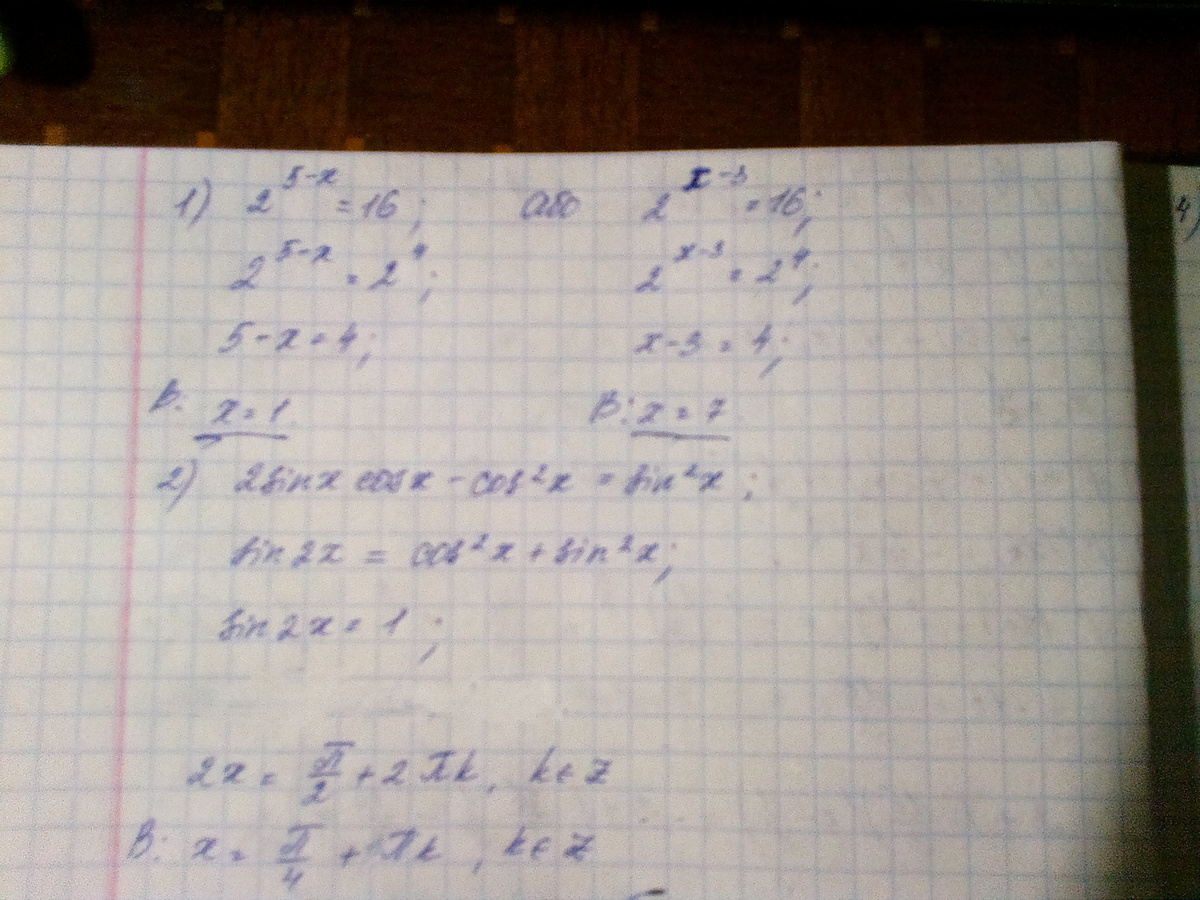 1) 2^(5-x) = 16; або 2^(x-3) = 16;
2^(5-x) = 2^4; 2^(x-3) = 2^4;
5-x = 4; x-3 = 4;
В: x = 1. В: x = 7
2) 2sinx cosx - cos²x = sin²x;
sin2x = cos²x + sin²x;
sin2x = 1;
2x = π/2 + 2πk, k∈Z
В: x = π/4 + πk, k∈Z
4)